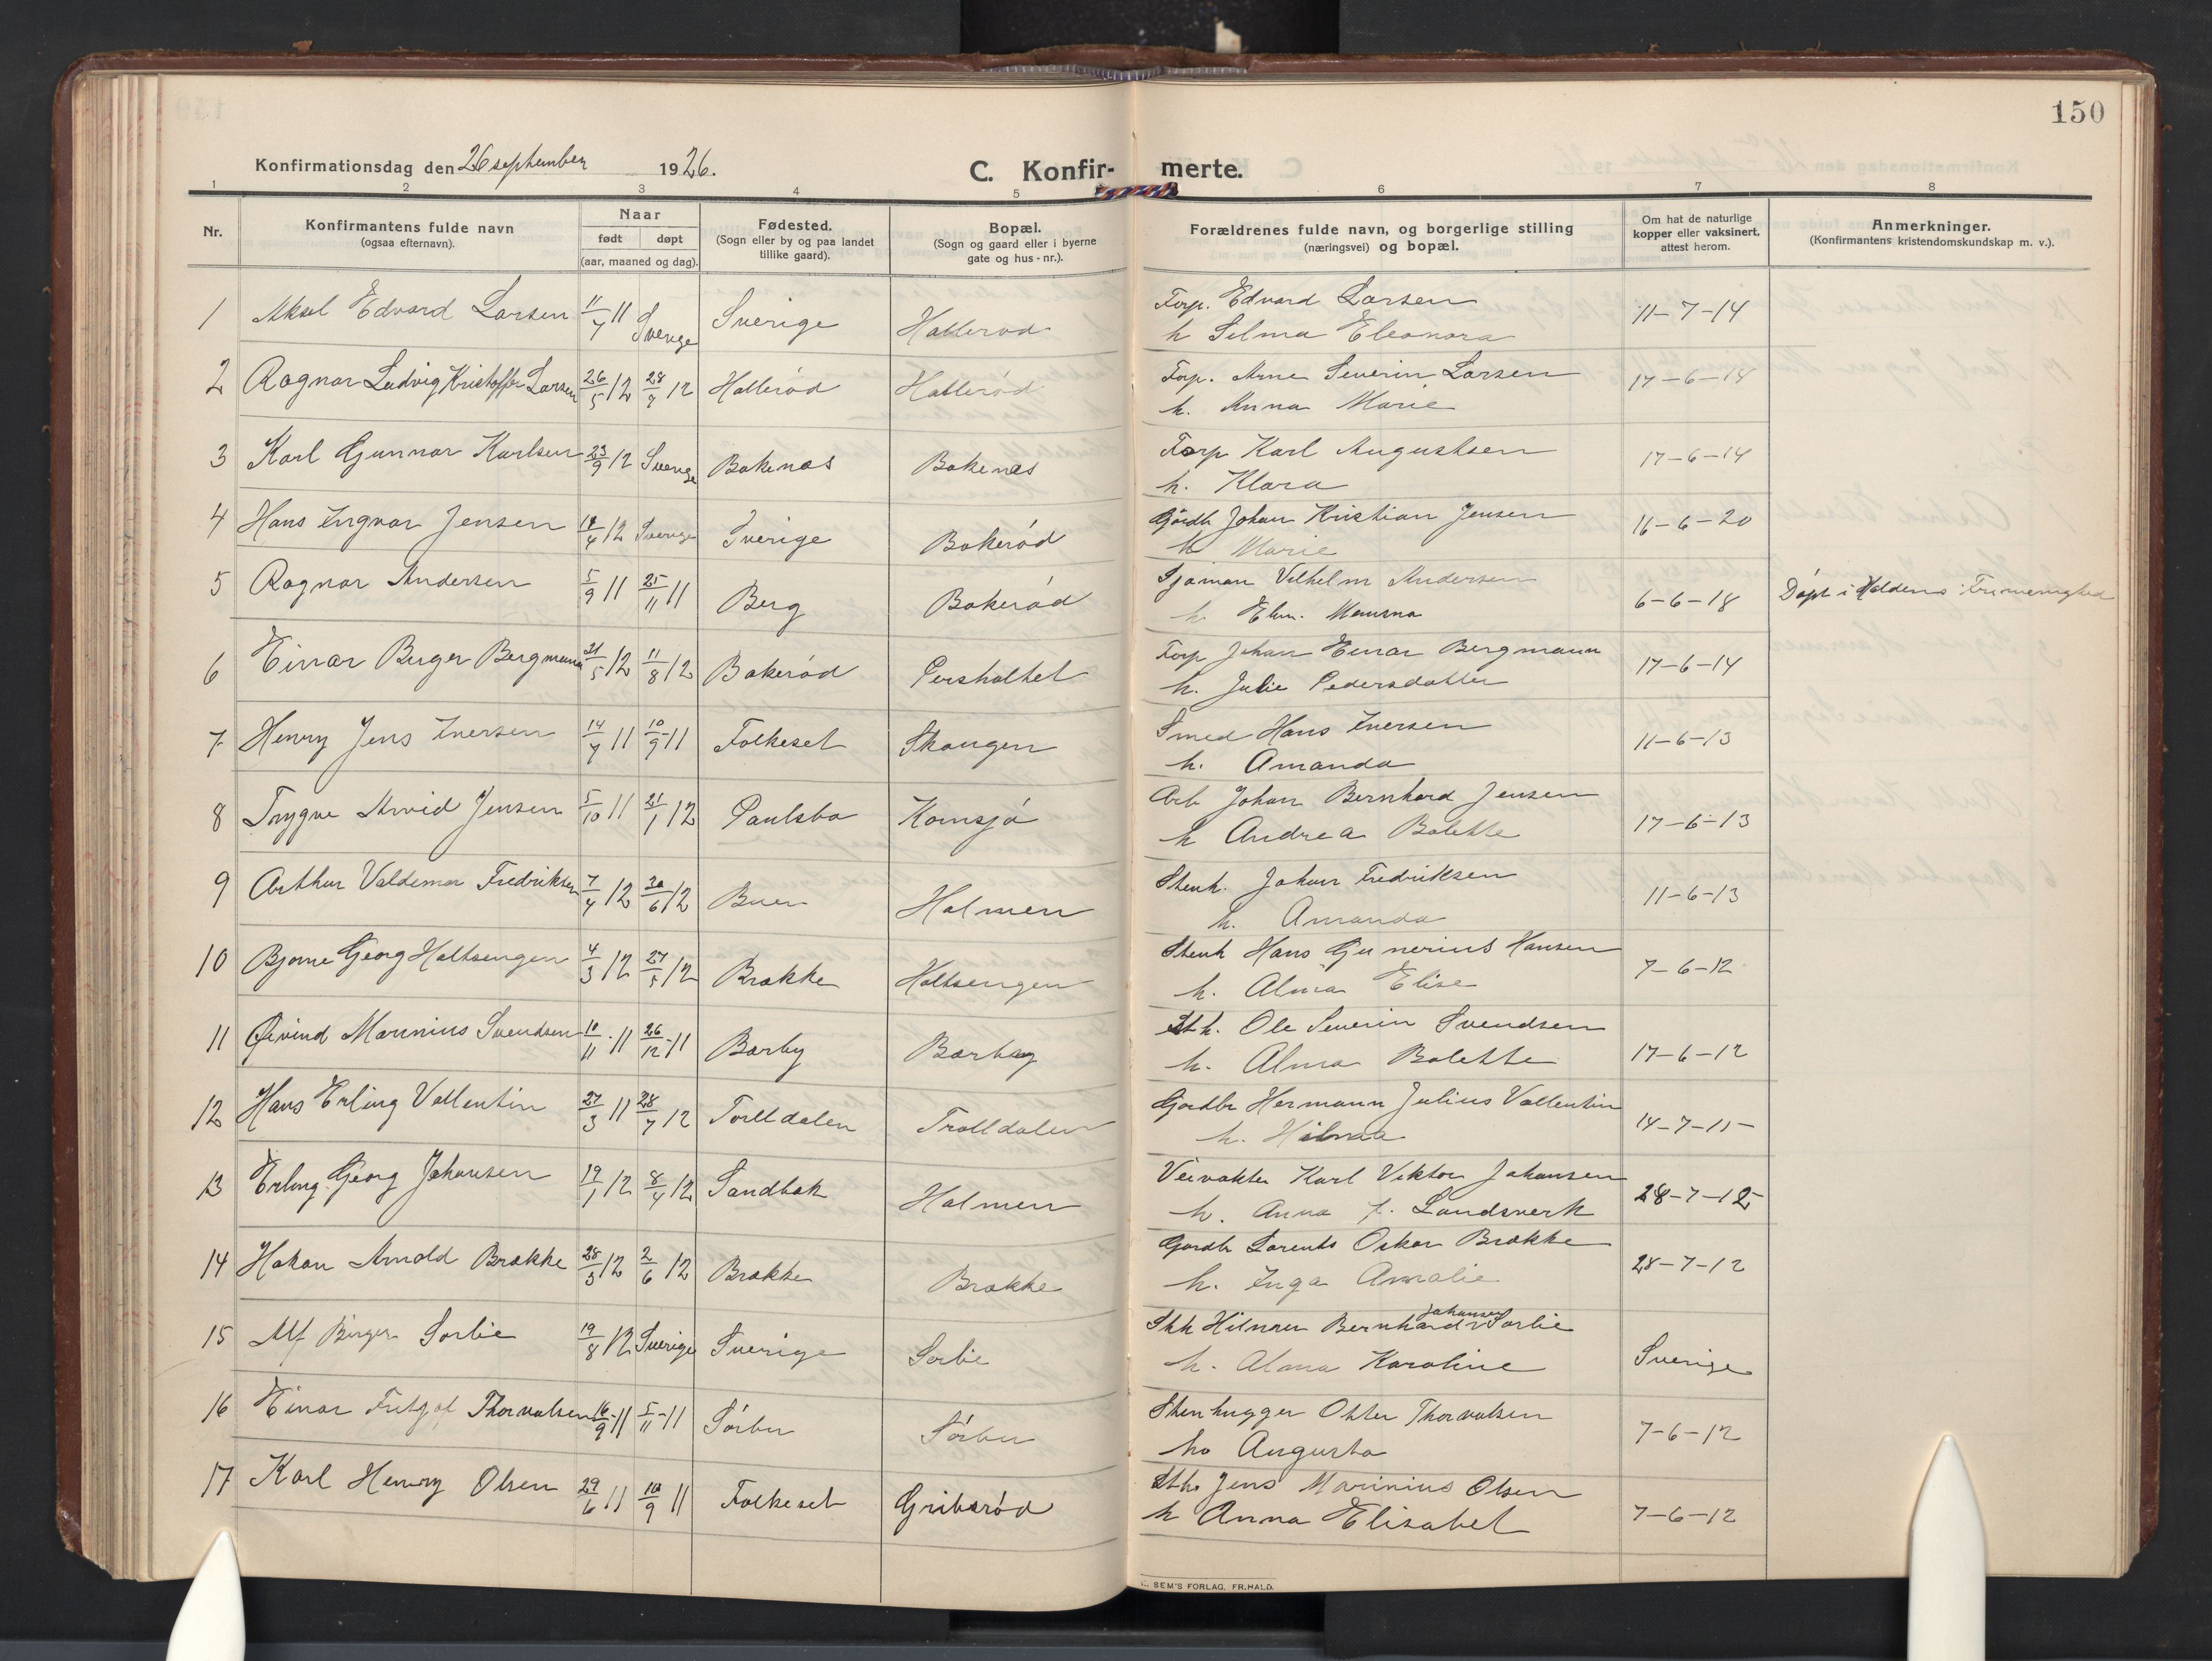 150
Konfirmationsdag den 26 september 1926.
C. Konfir- merte.
1 2 3 4 5 6 7 8
Nr.
Konfirmantens fulde navn
(ogsaa efternavn).
Naar
født døpt
(aar, maaned og dag).
Fødested.
(Sogn eller by og paa landet
tillike gaard).
Bopæl.
(Sogn og gaard eller i byerne
gate og hus-nr.).
Forældrenes fulde navn, og borgerlige stilling
(næringsvei) og bopæl.
Om hat de naturlige
kopper eller vaksinert,
attest herom.
Anmerkninger.
(Konfirmantens kristendomskundskap m. v.).
1 Aksel Edvard Larsen 11/7 11 Sverige Sverige Hallerød Forp. Edvard Larsen 11-7-14
h Selma Eleonora
2 Ragnar Ludvig Kristoffer Larsen 26/5 12 28/7 12 Hallerød Hallerød Forp. Arne Severin Larsen 17-6-14
h. Anna Marie
3 Karl Gunnar Karlsen 23/9 12 Sverige Bakenæs Bakenæs Forp Karl Augustsen 17-6-14
h. Klara
4 Hans Ingvar Jensen /4 12 Sverige Sverige Bakerød Gårdb Johan Kristian Jensen 16-6-20
h Marie
5 Ragnar Andersen 5/9 11 25/11 11 Berg Bakerød Sjøman Vilhelm Andersen 6-6-18 Døpt i Haldens Frimenighed
h.
6 Einar Birger Bergmann 31/5 12 11/8 12 Bakerød Persholtet Forp Johan Einar Bergmann 17-6-14
h. Julie Pedersdatter
7 Henry Jens Iversen 14/7 11 10/9-11 Folkeset Skaugen Smed Hans Iversen 11-6-13
h. Amanda
8 Trygve Arvid Jensen 5/10 11 21/1 12 Paulsbo Kornsjø Arb Johan Bernhard Jensen 17-6-13
h Andrea Bolette
9 Arthur Valdemar Fredriksen 7/4 12 30/6 12 Buer Holmen Stenh. Johan Fredriksen 11-6-13
h. Amanda
10 Bjarne Georg Holtsengen 4/3 12 27/5 12 Brække Holtsengen Stenh Hans Gunerius Hansen 7-6-12
h. Alma Elise
11 Øivind Marinius Svendsen 10/11-11 26/12-11 Bærby Bærby Sth. Ole Severin Svendsen 17-6-12
h. Alma Bolette
12 Hans Erling Vallentin 27/3 11 28/7 12 Torlldalen Trolldalen Gårdbr Hermann Julius Vallentin 14-7-15
h. Hilmaa
13 Erling Georg Johansen 19/1 12 8/4 12 Sandbæk Holmen Veivokter Karl Viktor Johansen 28-7-12
h. Anna f. Landsverk
14 Håkon Arnold Brække 28/3 12 2/6 12 Brække Brække Gårdb Lorents Oskar Brække 28-7-12
h. Inga Amalie
15 Alf Birger Sørlie 19/8 12 Sverige Sverige Sørlie Sth Hilmer Bernhard Johansen Sørlie Sverige
h. Alma Karoline
16 Einar Fritgof Thorvalsen 16/9-11 5/11-11 Sørbu Sørbu Stenhugger Otter Thorvalsen 7-6-12
ho Augusta
17 Karl Henry Olsen 29/6 11 10/9 11 Folkeset Gribsrød Sth. Jens Marinius Olsen 7-6-12
h Anna Elisabet
SEM'S FORLAG. FR.HALD.